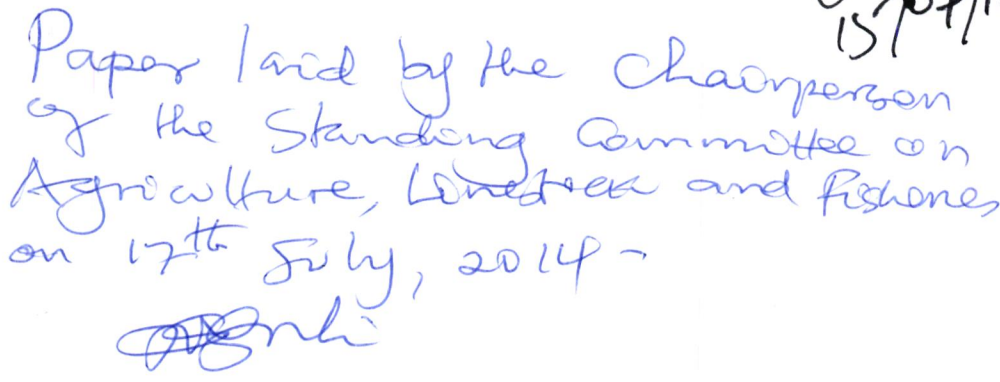 Paper laid by the Chairperson
of the Standing Committee on
Agriculture, Livestock and Fisheries
on 17th July, 2014-